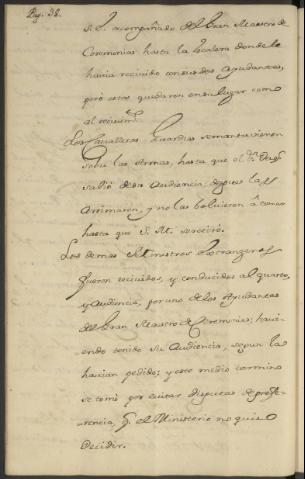 Pag. 38.
S. E. acompañado del Gran Maestro de
Ceremonias hasta la Escalera donde le
havia recivido con sus dos Ayudantes,
pero estos quedaron en su lugar como
al recivim.to
Los Cavalleros Guardias se mantuvieron
sobre las Armas, hasta que el
salió de su Audiencia; despues las
Arrimaron, y no las bolvieron à tomar
hasta que S. M. se retiró.
Los demas Ministros Estrangeros
fueron recividos, y conducidos al quarto,
y Audiencia, por uno de los Ayudantes
del Gran Maestro de Ceremonias; havi-
endo tenido su Audiencia, segun la
havian pedido; y este medio termino
se tomó por evitar disputas de prefe-
rencia, q. el Ministerio no quiso
Decidir.